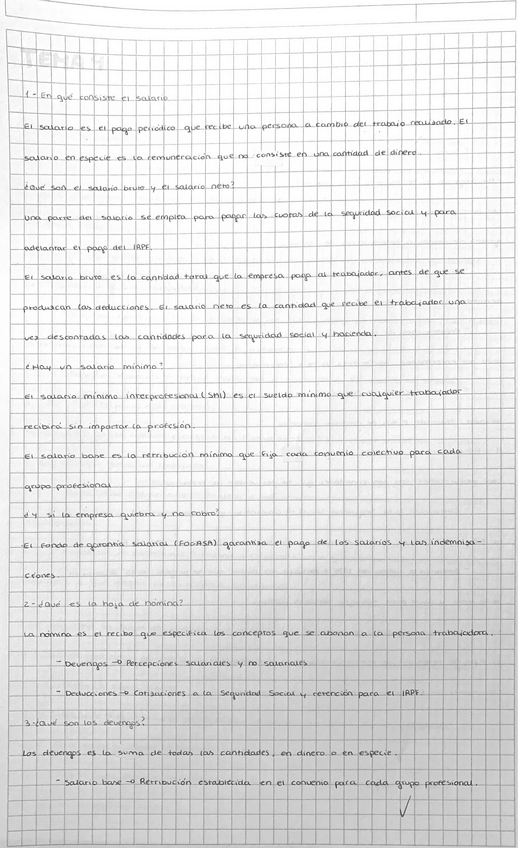 1- En qué consiste el salario
El salario es el pago periódico que recibe una persona a cambio del trabajo realizado. El
salario en especie es la remuneración que no consiste en una cantidad de dinero.
¿Qué son el salario bruto y el salario neto?
Una parte del salario se emplea para pagar las cuotas de la seguridad social y para
adelantar el pago del IRPF.
El salario bruto es la cantidad total que la empresa paga al trabajador, antes de que se
produzcan las deducciones. El salario neto es la cantidad que recibe el trabajador una
vez descontadas las cantidades para la seguridad social y hacienda.
¿Hay un salario mínimo?
El salario mínimo interprofesional (SMI) es el sueldo mínimo que cualquier trabajador
recibirá sin importar la profesión.
El salario base es la retribución mínima que fija cada convenio colectivo para cada
grupo profesional
¿Y si la empresa quiebra y no cobro?
El Fondo de garantía salarial (FOGASA) garantiza el pago de los salarios y las indemniza-
ciones.
2- ¿Qué es la hoja de nomina?
La nomina es el recibo que especifica los conceptos que se abonan a la persona trabajadora.
- Devengos → Percepciones salariales y no salariales
- Deducciones → Cotizaciones a la Seguridad Social y retención para el IRPF.
3-¿Qué son los devengos?
Los devengos es la suma de todas las cantidades, en dinero o en especie.
- Salario base → Retribución establecida en el convenio para cada grupo profesional.